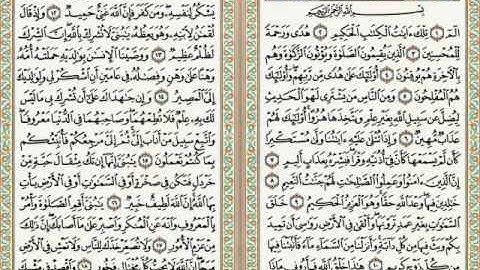 بِسْمِ ٱللَّهِ ٱلرَّحْمَٰنِ ٱلرَّحِيمِ
الٓمٓ ١ تِلْكَ ءَايَٰتُ ٱلْكِتَٰبِ ٱلْحَكِيمِ ٢ هُدًى وَرَحْمَةً
لِّلْمُحْسِنِينَ ٣ ٱلَّذِينَ يُقِيمُونَ ٱلصَّلَوٰةَ وَيُؤْتُونَ ٱلزَّكَوٰةَ وَهُم
بِٱلْءَاخِرَةِ هُمْ يُوقِنُونَ ٤ أُو۟لَٰٓئِكَ عَلَىٰ هُدًى مِّن رَّبِّهِمْ وَأُو۟لَٰٓئِكَ
هُمُ ٱلْمُفْلِحُونَ ٥ وَمِنَ ٱلنَّاسِ مَن يَشْتَرِى لَهْوَ ٱلْحَدِيثِ
لِيُضِلَّ عَن سَبِيلِ ٱللَّهِ بِغَيْرِ عِلْمٍ وَيَتَّخِذَهَا هُزُوًا أُو۟لَٰٓئِكَ لَهُمْ
عَذَابٌ مُّهِينٌ ٦ وَإِذَا تُتْلَىٰ عَلَيْهِ ءَايَٰتُنَا وَلَّىٰ مُسْتَكْبِرًا
كَأَن لَّمْ يَسْمَعْهَا كَأَنَّ فِىٓ أُذُنَيْهِ وَقْرًا فَبَشِّرْهُ بِعَذَابٍ أَلِيمٍ ٧
إِنَّ ٱلَّذِينَ ءَامَنُوا۟ وَعَمِلُوا۟ ٱلصَّٰلِحَٰتِ لَهُمْ جَنَّٰتُ ٱلنَّعِيمِ ٨
خَٰلِدِينَ فِيهَا وَعْدَ ٱللَّهِ حَقًّا وَهُوَ ٱلْعَزِيزُ ٱلْحَكِيمُ ٩ خَلَقَ
ٱلسَّمَٰوَٰتِ بِغَيْرِ عَمَدٍ تَرَوْنَهَا وَأَلْقَىٰ فِى ٱلْأَرْضِ رَوَٰسِىَ أَن تَمِيدَ
بِكُمْ وَبَثَّ فِيهَا مِن كُلِّ دَآبَّةٍ وَأَنزَلْنَا مِنَ ٱلسَّمَآءِ مَآءً فَأَنۢبَتْنَا فِيهَا
مِن كُلِّ زَوْجٍ كَرِيمٍ ١٠ هَٰذَا خَلْقُ ٱللَّهِ فَأَرُونِى مَاذَا
يَشْكُرُ لِنَفْسِهِۦ وَمَن كَفَرَ فَإِنَّ ٱللَّهَ غَنِىٌّ حَمِيدٌ ١٢ وَإِذْ قَالَ
لُقْمَٰنُ لِٱبْنِهِۦ وَهُوَ يَعِظُهُۥ يَٰبُنَىَّ لَا تُشْرِكْ بِٱللَّهِ إِنَّ ٱلشِّرْكَ
لَظُلْمٌ عَظِيمٌ ١٣ وَوَصَّيْنَا ٱلْإِنسَٰنَ بِوَٰلِدَيْهِ حَمَلَتْهُ أُمُّهُۥ
وَهْنًا عَلَىٰ وَهْنٍ وَفِصَٰلُهُۥ فِى عَامَيْنِ أَنِ ٱشْكُرْ لِى وَلِوَٰلِدَيْكَ
إِلَىَّ ٱلْمَصِيرُ ١٤ وَإِن جَٰهَدَاكَ عَلَىٰٓ أَن تُشْرِكَ بِى مَا لَيْسَ
لَكَ بِهِۦ عِلْمٌ فَلَا تُطِعْهُمَا وَصَاحِبْهُمَا فِى ٱلدُّنْيَا مَعْرُوفًا
وَٱتَّبِعْ سَبِيلَ مَنْ أَنَابَ إِلَىَّ ثُمَّ إِلَىَّ مَرْجِعُكُمْ فَأُنَبِّئُكُم
بِمَا كُنتُمْ تَعْمَلُونَ ١٥ يَٰبُنَىَّ إِنَّهَآ إِن تَكُ مِثْقَالَ حَبَّةٍ مِّنْ
خَرْدَلٍ فَتَكُن فِى صَخْرَةٍ أَوْ فِى ٱلسَّمَٰوَٰتِ أَوْ فِى ٱلْأَرْضِ يَأْتِ
بِهَا ٱللَّهُ إِنَّ ٱللَّهَ لَطِيفٌ خَبِيرٌ ١٦ يَٰبُنَىَّ أَقِمِ ٱلصَّلَوٰةَ وَأْمُرْ
بِٱلْمَعْرُوفِ وَٱنْهَ عَنِ ٱلْمُنكَرِ وَٱصْبِرْ عَلَىٰ مَآ أَصَابَكَ إِنَّ ذَٰلِكَ
مِنْ عَزْمِ ٱلْأُمُورِ ١٧ وَلَا تُصَعِّرْ خَدَّكَ لِلنَّاسِ وَلَا تَمْشِ فِى ٱلْأَرْضِ
مَرَحًا إِنَّ ٱللَّهَ لَا يُحِبُّ كُلَّ مُخْتَالٍ فَخُورٍ ١٨ وَٱقْصِدْ فِى مَشْيِكَ